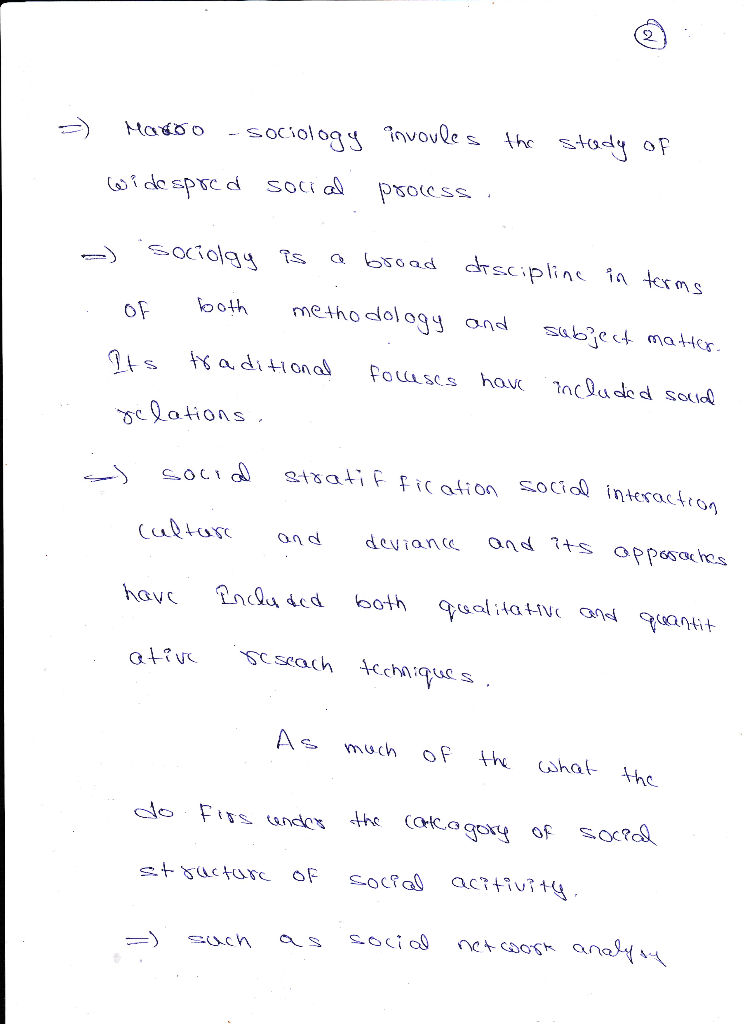 2
=) Macro - sociology invovles the study of
widespred social process.
=) sociolgy is a broad discipline in terms
of both methodology and subject matter.
Its traditional focuses have included social
relations.
=) social stratif fication social interaction
culture and deviance and its apporoaches
have Included both qualitative and quantit
ative reseach techniques.
As much of the what the
do firs under the catcagory of social
structure of social acitivity.
=) such as social network analysy